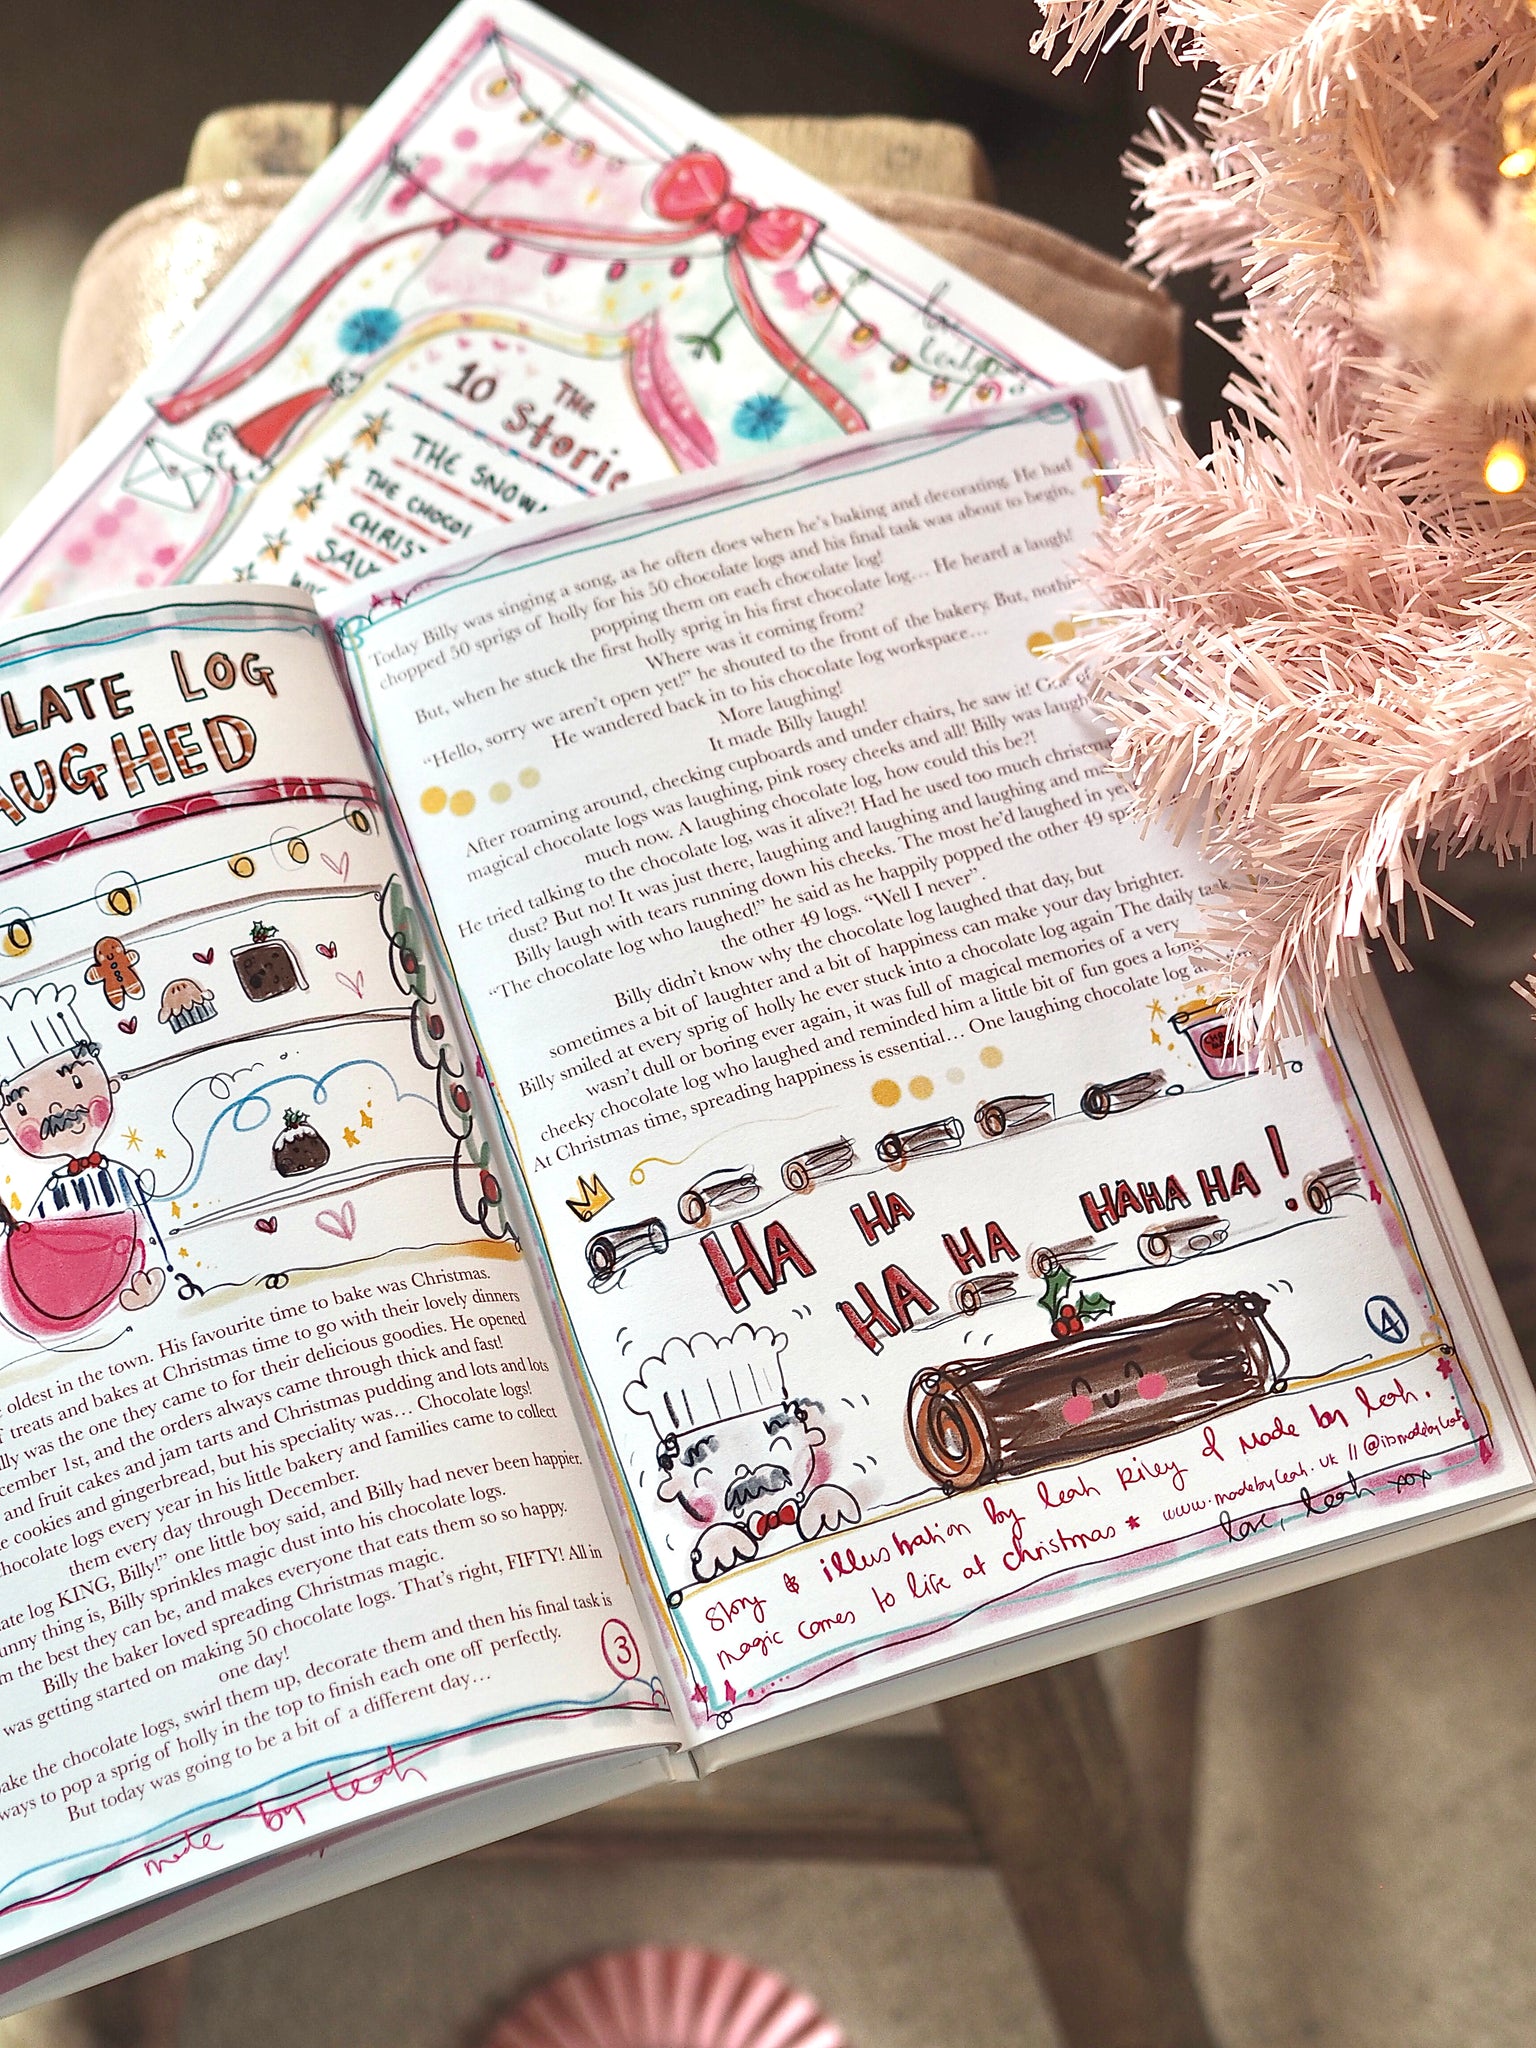 10 THE
Stories
THE SNOW
THE CHOCOL
CHRIST
SAU
LATE LOG
AUGHED
oldest in the town. His favourite time to bake was Christmas.
treats and bakes at Christmas time to go with their lovely dinners
was the one they came to for their delicious goodies. He opened
1st, and the orders always came through thick and fast!
and fruit cakes and jam tarts and Christmas pudding and lots and lots
cookies and gingerbread, but his speciality was… Chocolate logs!
chocolate logs every year in his little bakery and families came to collect
them every day through December.
KING, Billy!” one little boy said, and Billy had never been happier.
thing is, Billy sprinkles magic dust into his chocolate logs.
the best they can be, and makes everyone that eats them so so happy.
Billy the baker loved spreading Christmas magic.
was getting started on making 50 chocolate logs. That’s right, FIFTY! All in
one day!
the chocolate logs, swirl them up, decorate them and then his final task is
to pop a sprig of holly in the top to finish each one off perfectly.
But today was going to be a bit of a different day…
3
made by leah
Today Billy was singing a song, as he often does when he’s baking and decorating. He had
chopped 50 sprigs of holly for his 50 chocolate logs and his final task was about to begin,
popping them on each chocolate log!
But, when he stuck the first holly sprig in his first chocolate log… He heard a laugh!
Where was it coming from?
“Hello, sorry we aren’t open yet!” he shouted to the front of the bakery. But,
He wandered back in to his chocolate log workspace…
More laughing!
It made Billy laugh!
After roaming around, checking cupboards and under chairs, he saw it! of
magical chocolate logs was laughing, pink rosey cheeks and all! Billy was
much now. A laughing chocolate log, how could this be?!
He tried talking to the chocolate log, was it alive?! Had he used too much
dust? But no! It was just there, laughing and laughing and laughing and
Billy laugh with tears running down his cheeks. The most he’d laughed in
“The chocolate log who laughed!” he said as he happily popped the other 49
the other 49 logs. “Well I never”.
Billy didn’t know why the chocolate log laughed that day, but
sometimes a bit of laughter and a bit of happiness can make your day brighter.
Billy smiled at every sprig of holly he ever stuck into a chocolate log again The daily task
wasn’t dull or boring ever again, it was full of magical memories of a very
cheeky chocolate log who laughed and reminded him a little bit of fun goes a long
At Christmas time, spreading happiness is essential… One laughing chocolate log
HA HA
HA HA HAHA HA!
4
Story & illustration by Leah Riley of Made by Leah.
magic comes to life at christmas * www.madebyleah.uk // @itsmadebyleah
love, leah xox